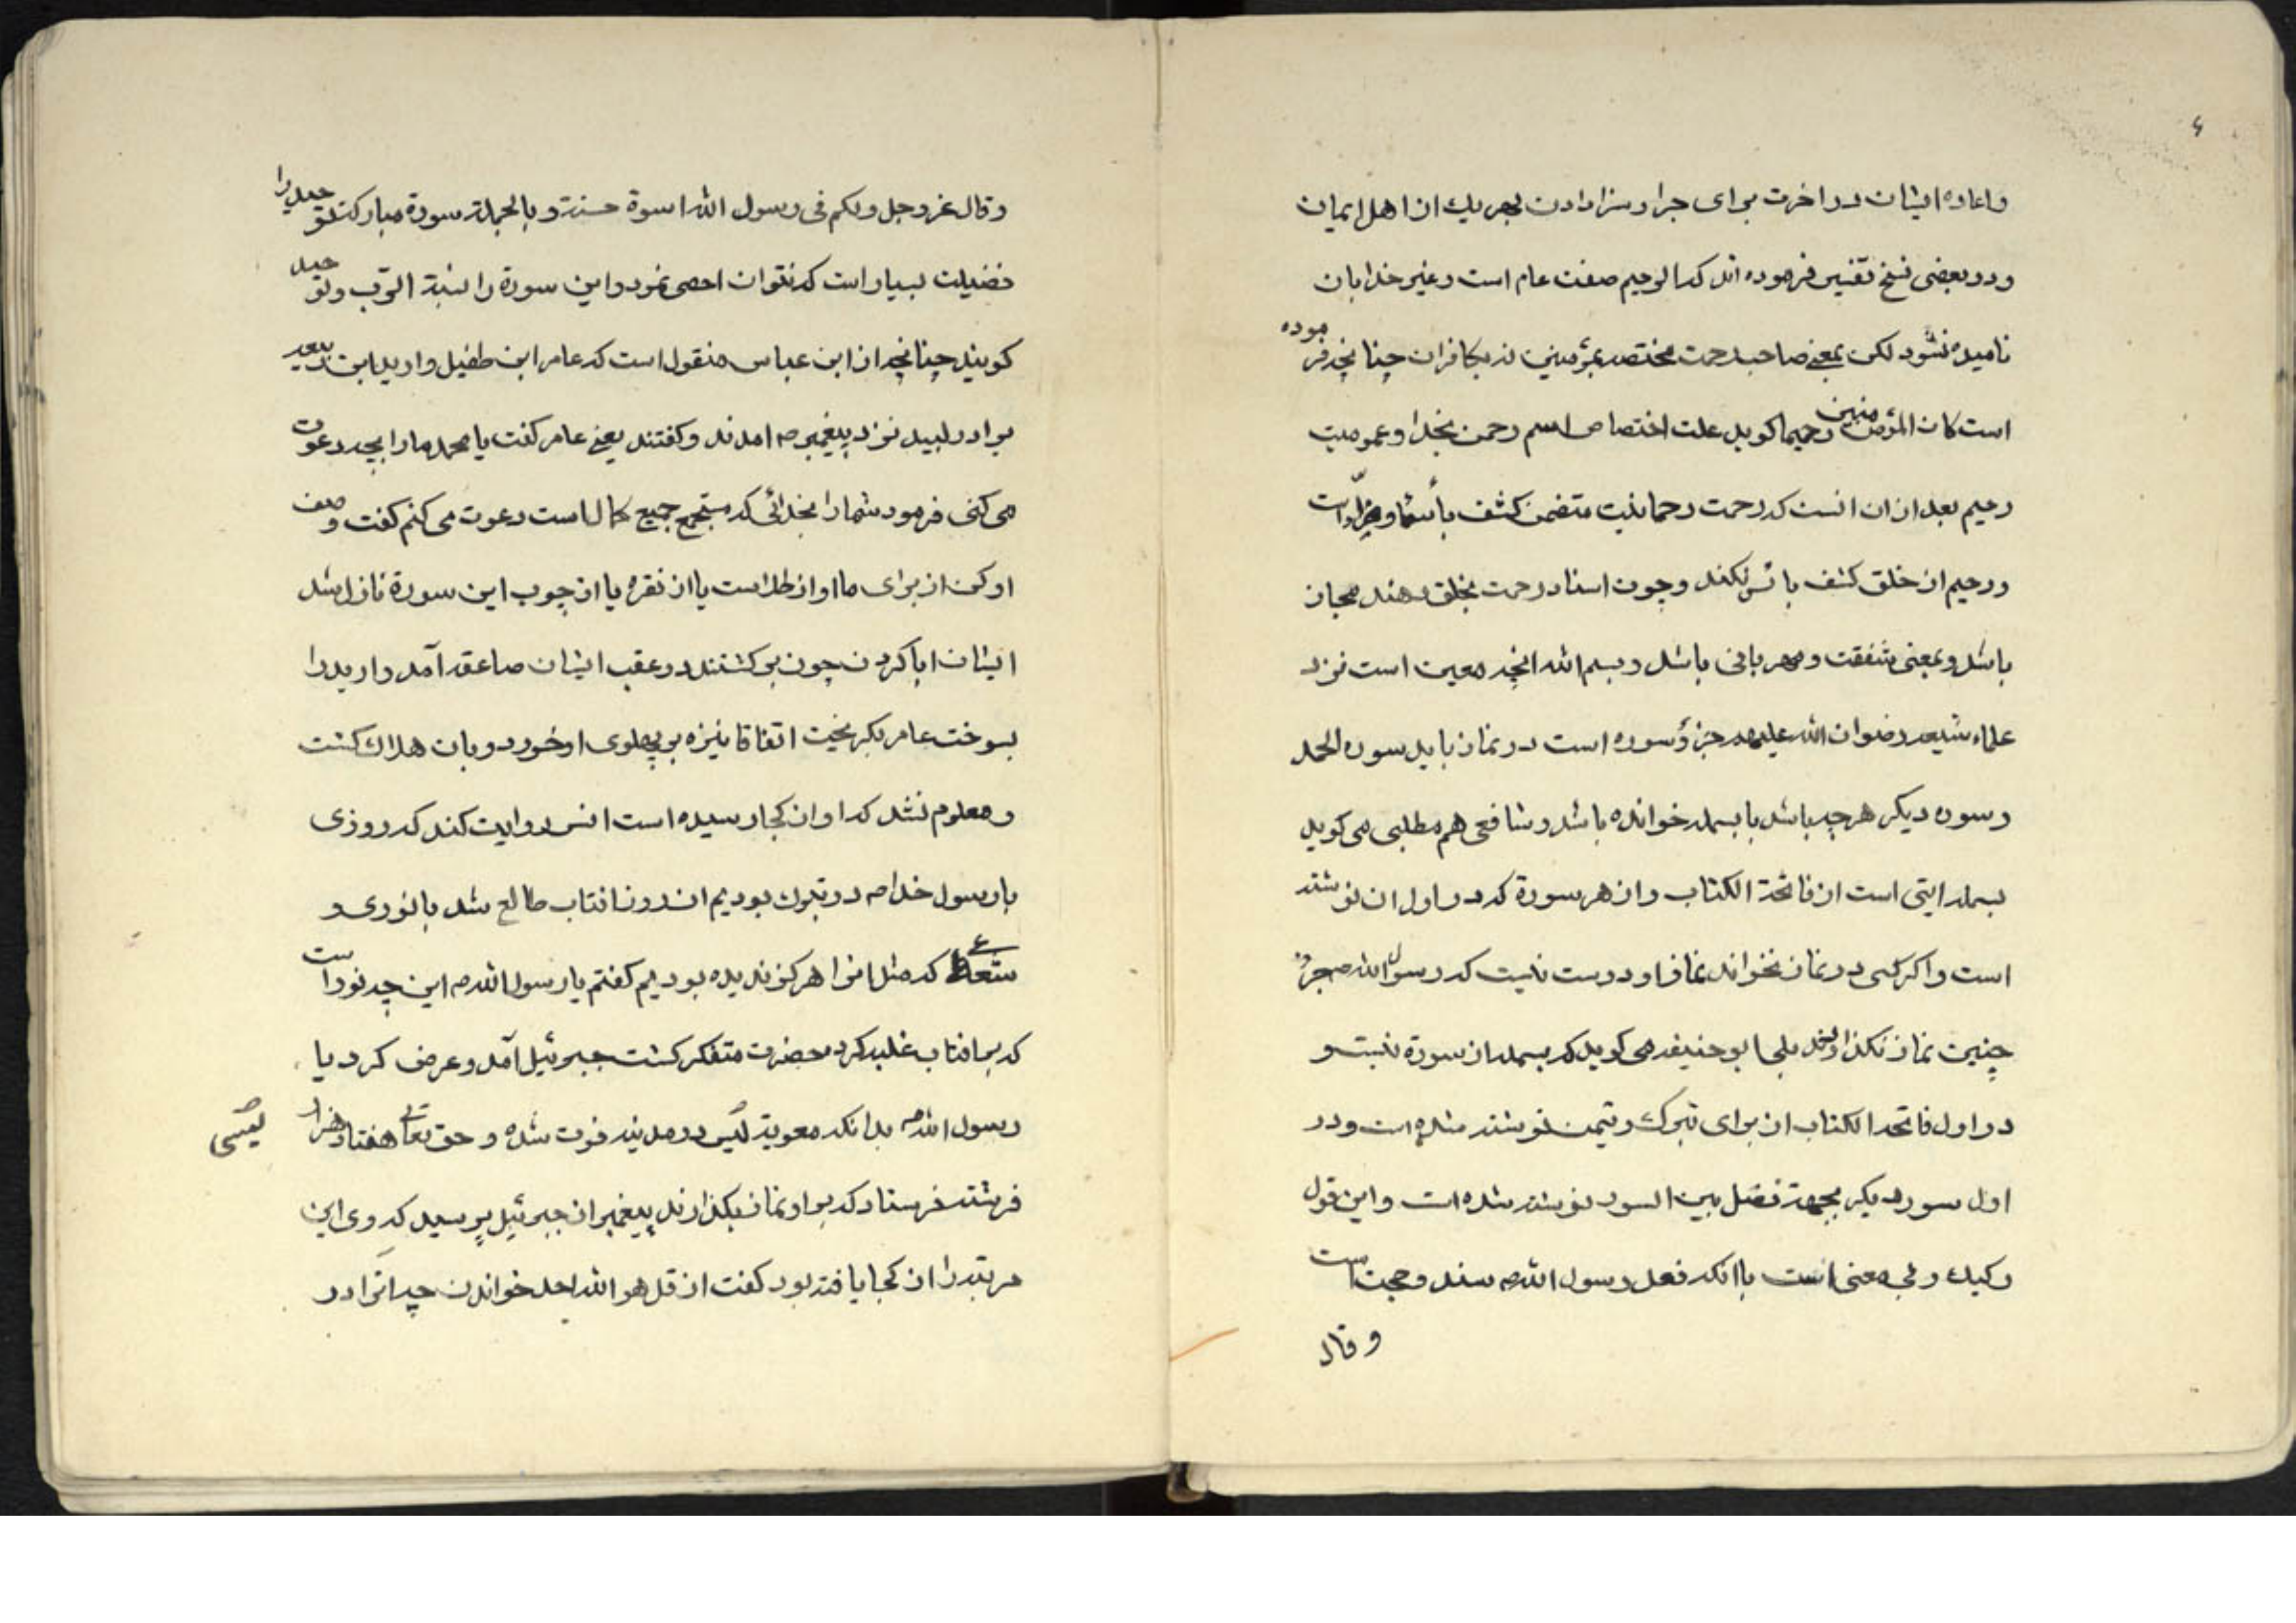 ۴
واعاده ایشان در اخرت برای جزا و سزا دادن بهر یك از اهل ایمان
و در بعضی نسخ تفسیر فرموده اند که الرحیم صفت عام است و غیر خدا بان
نامیده نشود لکن بمعنی صاحب رحمت مختصه بمؤمنین نه بکافران چنانچه فرموده
است کان المؤمنین رحیما کوید علت اختصاص اسم رحمن بخدا و عمومیت
رحیم بعد از ان انست که رحمت رحمانیت متضمن کشف بأساء و ضراء است
و رحیم از خلق کشف بأس نکند و چون اسناد رحمت بخلق دهند مجاز
باشد و بمعنی شفقت و مهربانی باشد و بسم الله انچه معین است نزد
علماء شیعه رضوان الله علیهم جزؤ سوره است در نماز باید سوره الحمد
و سوره دیکر هر چه باشد با بسمله خوانده باشد و شافعی هم مطلبی می کوید
بسمله ایتی است از فاتحة الکتاب و از هر سورة که در اول ان نوشته
است و اکر کسی در نماز نخواند نماز او درست نیست که رسول الله ص
چنین نماز نکذارد بلی ابو حنیفه می کوید که بسمله از سورة نیست و
در اول فاتحه الکتاب از برای تبرك و تیمن نوشته شده است و در
اول سوره دیکر بجهة فصل بین السور نوشته شده است و این قول
رکیك و بی معنی است با انکه فعل رسول الله ص سند و حجت است
و قال
و قال عز و جل و لکم فی رسول الله اسوة حسنة و بالجملة سورة مبارکه توحید را
فضیلت بسیار است که نتوان احصی نمود و این سورة را نسبة الرب و توحید
کویند چنانچه از ابن عباس منقول است که عامر ابن طفیل و اربد ابن ربیعه
برادر لبید نزد پیغمبر ص امدند و کفتند یعنی عامر کفت یا محمد ما را بچه دعوت
می کنی فرمود شما را بخدائی که مستجمع جمیع کمالاست دعوت می کنم کفت وصف
او کن از برای ما او از طلا است یا از نقره یا از چوب این سورة نازل شد
ایشان ابا کردن چون بر کشتند در عقب ایشان صاعقه آمد و اربد را
بسوخت عامر بکریخت اتفاقا نیزه بر پهلوی او خورد و بان هلاك کشت
و معلوم نشد که او از کجا رسیده است انس روایت کند که روزی
با رسول خدا ص در تبوك بودیم ان روز افتاب طالع شد با نوری و
شعاعی که مثل انرا هرکز ندیده بودیم کفتم یا رسول الله ص این چه نور است
که بر افتاب غلبه کرد حضرت متفکر کشت جبرئیل آمد و عرض کرد یا
رسول الله ص بدانکه معویة لیس در مدینه فوت شده و حق تعالی هفتاد هزار
لیثی
فرشته فرستاد که بر او نماز بکذارند پیغمبر از جبرئیل پرسید که وی این
مرتبه را از کجا یافته بود کفت از قل هو الله احد خواندن چه انرا در